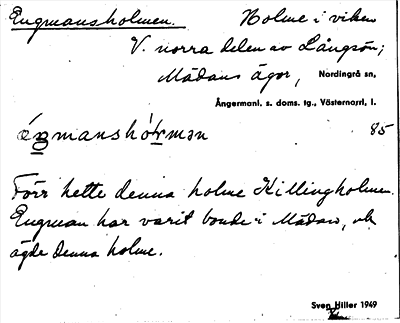 Engmansholmen. Holme i viken
V. norra delen av Långsön;
Mädans ägor, Nordingrå sn,
Ångermanl. s. doms. tg., Västernorrl. l.
85
Förr hette denna holme Killingholmen.
Engman har varit bonde i Mädan, och
ägde denna holme.
Sven Hiller 1949